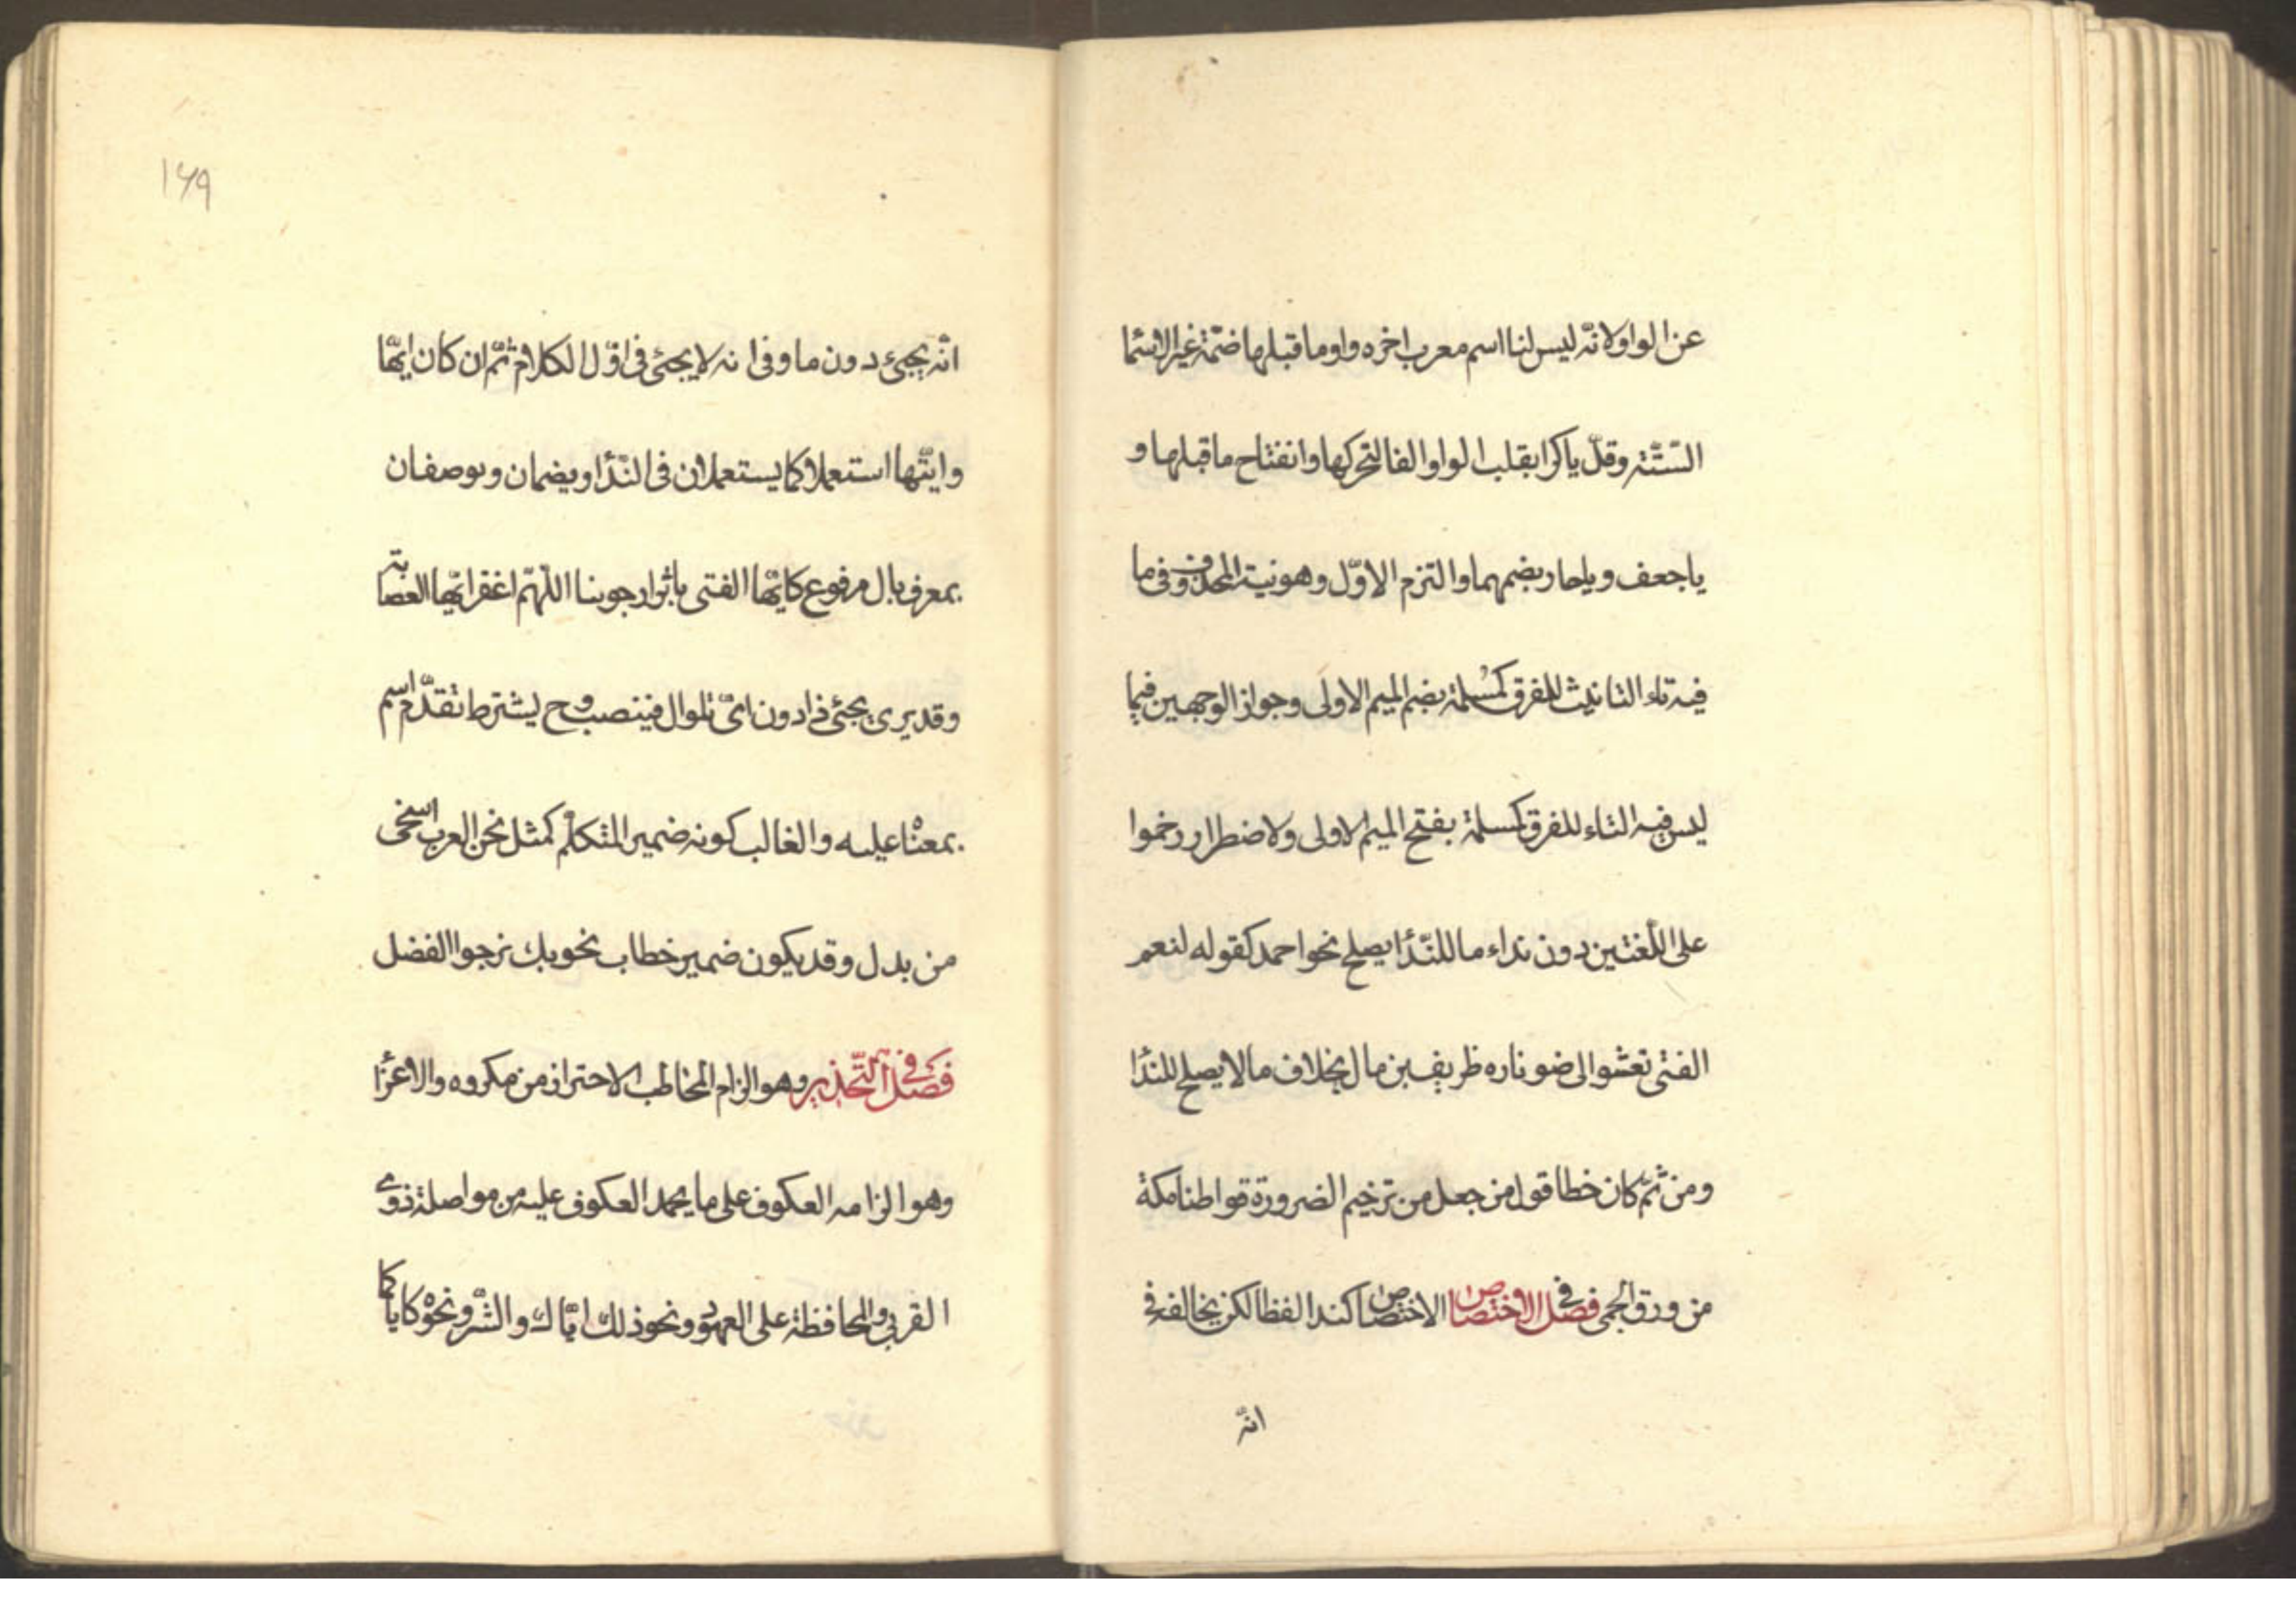 عن الواو ولانّه ليس لنا اسم معرب اخره واو وما قبلها ضمّة غير الاسما
السّتّة وقلّ ياكرا بقلب الواو الفا لتحركها وانفتاح ما قبلها و
ياجعف وياحار بضمهما والتزم الاوّل وهو نية المحذوف فى ما
فيه تاء التانيث للفرق كمُسلمة بضم الميم الاولى وجواز الوجهين فيما
ليس فيه التاء للفرق كمسلمة بفتح الميم الاولى ولاضطرار رخموا
على اللّغتين دون نداء ما للنّدا يصلح نحو احمد كقوله لنعم
الفتى تعشوا الى ضو ناره طريف بن مال بخلاف ما لا يصلح للندا
ومن ثمّ كان خطا قول من جعل من ترخيم الضرورة قواطنا مكة
من ورق الحمى فصل فى الاختصاص الاختصاص كندا لفظا لكن يخالفه فى
انّه
١٦٩
انّه يجئ دون ما وفى انه لا يجئ فى اوّل الكلام ثمّ ان كان ايّها
وايّتها استعملا كما يستعملان فى النّدا ويضمان ويوصفان
بمعرف بال مرفوع كايّها الفتى باثر ارجونيا اللّهمّ اغفر ايّتها العصابة
وقد يرى يجئ ذا دون اىّ تلو ال فينصب وح يشترط تقدّم اسم
بمعناه عليه والغالب كونه ضمير المتكلّم كمثل نحن العرب اسخى
من بدل وقد يكون ضمير خطاب نحو بك نرجوا الفضل
فصل فى التّحذير وهو الزام المخاطب الاحتراز من مكروه والاغرا
وهو الزامه العكوف على ما يحمد العكوف عليه من مواصلة ذوى
القربى والمحافظة على العهود ونحو ذلك ايّاك والشّرّ ونحوه كاياكما